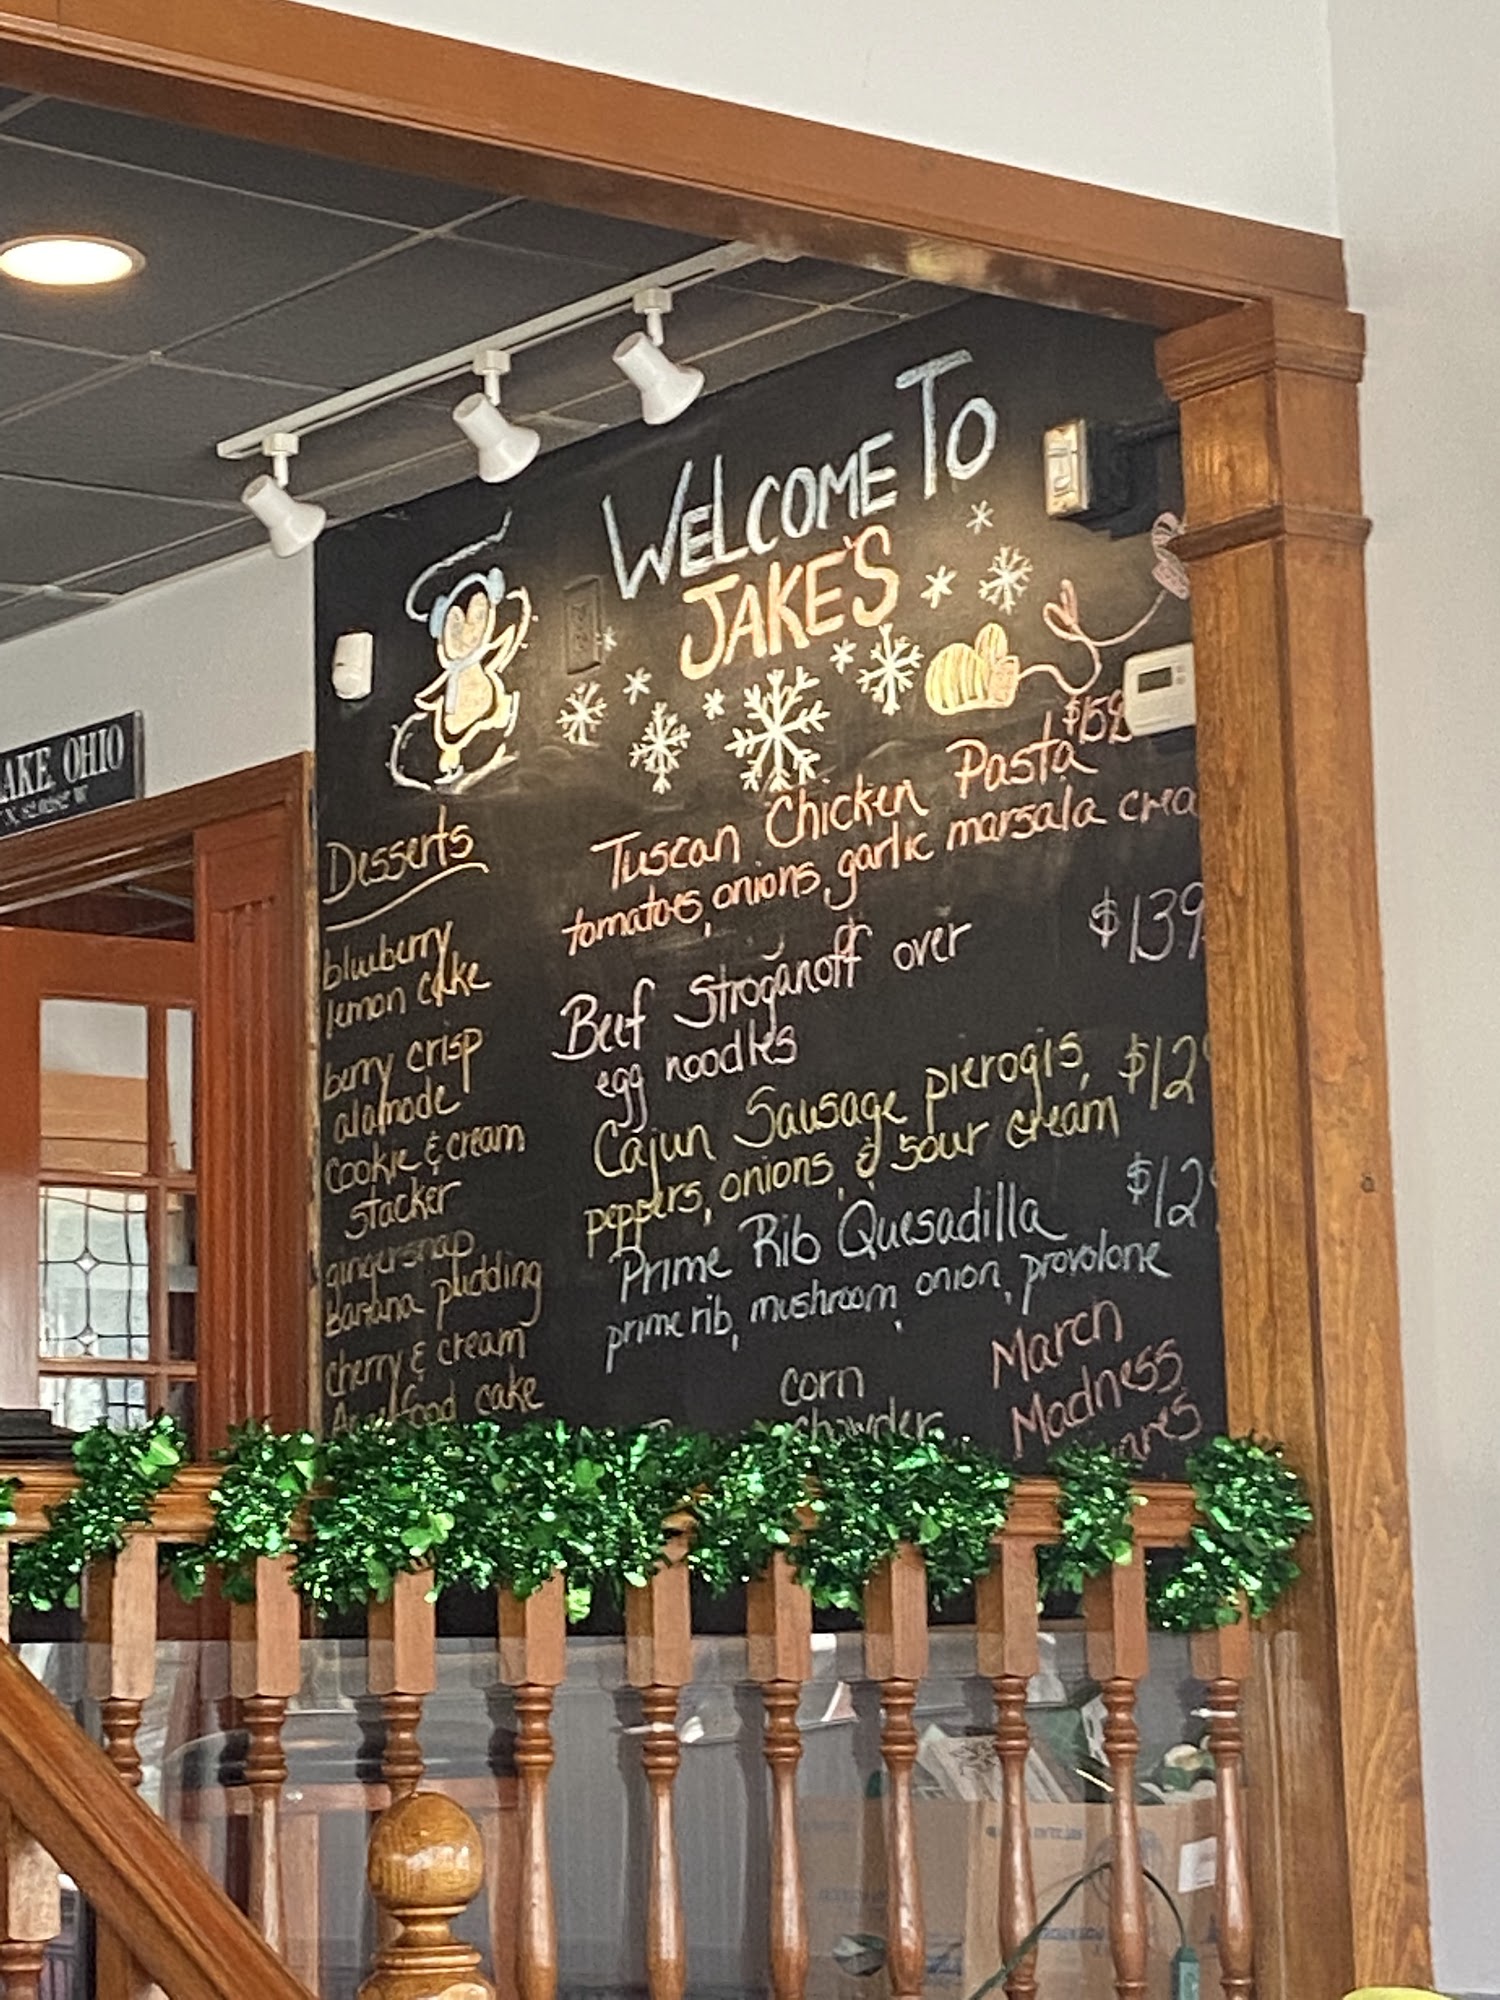 AKE OHIO
WELCOME TO
JAKE'S
Desserts
blueberry
lemon cake
berry crisp
alamode
cookie & cream
stacker
gingersnap
banana pudding
cherry & cream
Angelfood cake
Tuscan Chicken Pasta
tomatoes, onions, garlic marsala crea
$139
Beef Stroganoff over
egg noodles
$12
Cajun Sausage pierogis,
peppers, onions, & sour cream
$12
Prime Rib Quesadilla
prime rib, mushroom, onion, provolone
corn
chowder
March
Madness